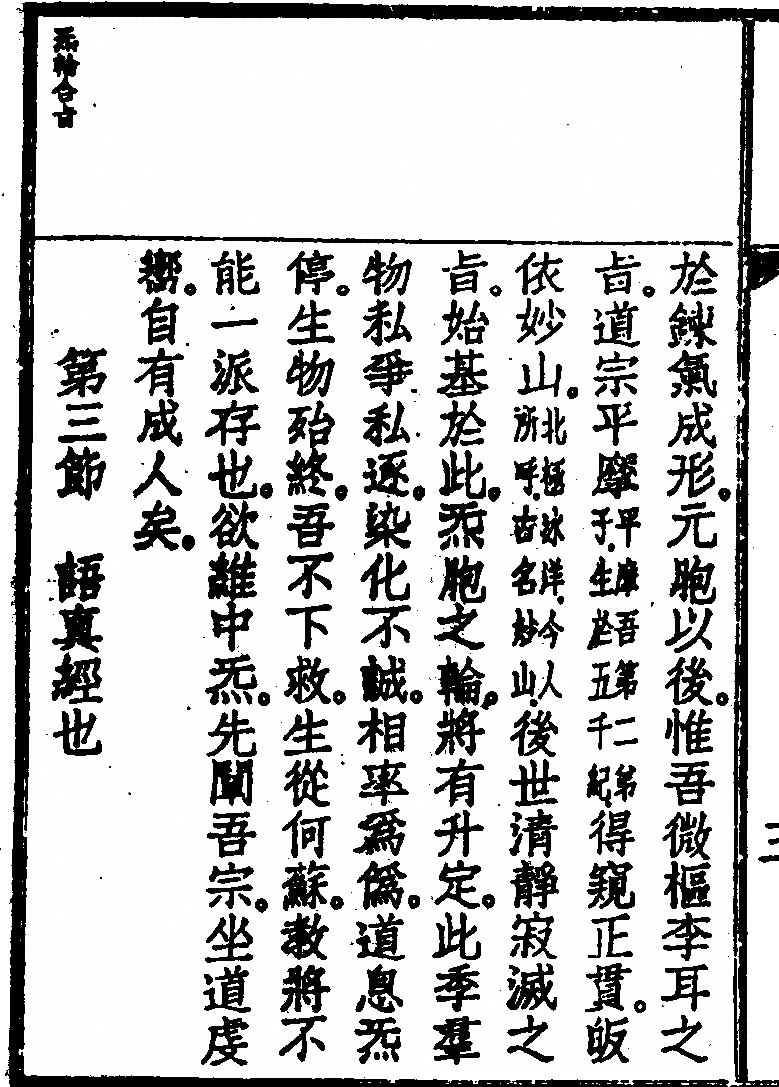 於鍊氣成形。元胞以後。惟吾微樞李耳之
旨。道宗平摩平摩吾第二弟子。生於五千紀得窺正貫。皈
依妙山。北極冰洋。今人所呼。古名妙山。後世清靜寂滅之
旨。始基於此。炁胞之輪。將有升定。此季羣
物私爭私逐。染化不誠。相率爲僞。道息炁
停。生物殆終。吾不下救。生從何蘇。教將不
能一派存也。欲離中炁。先闡吾宗。坐道虔
嚮。自有成人矣。
第三節　語真經也
炁輪合旨